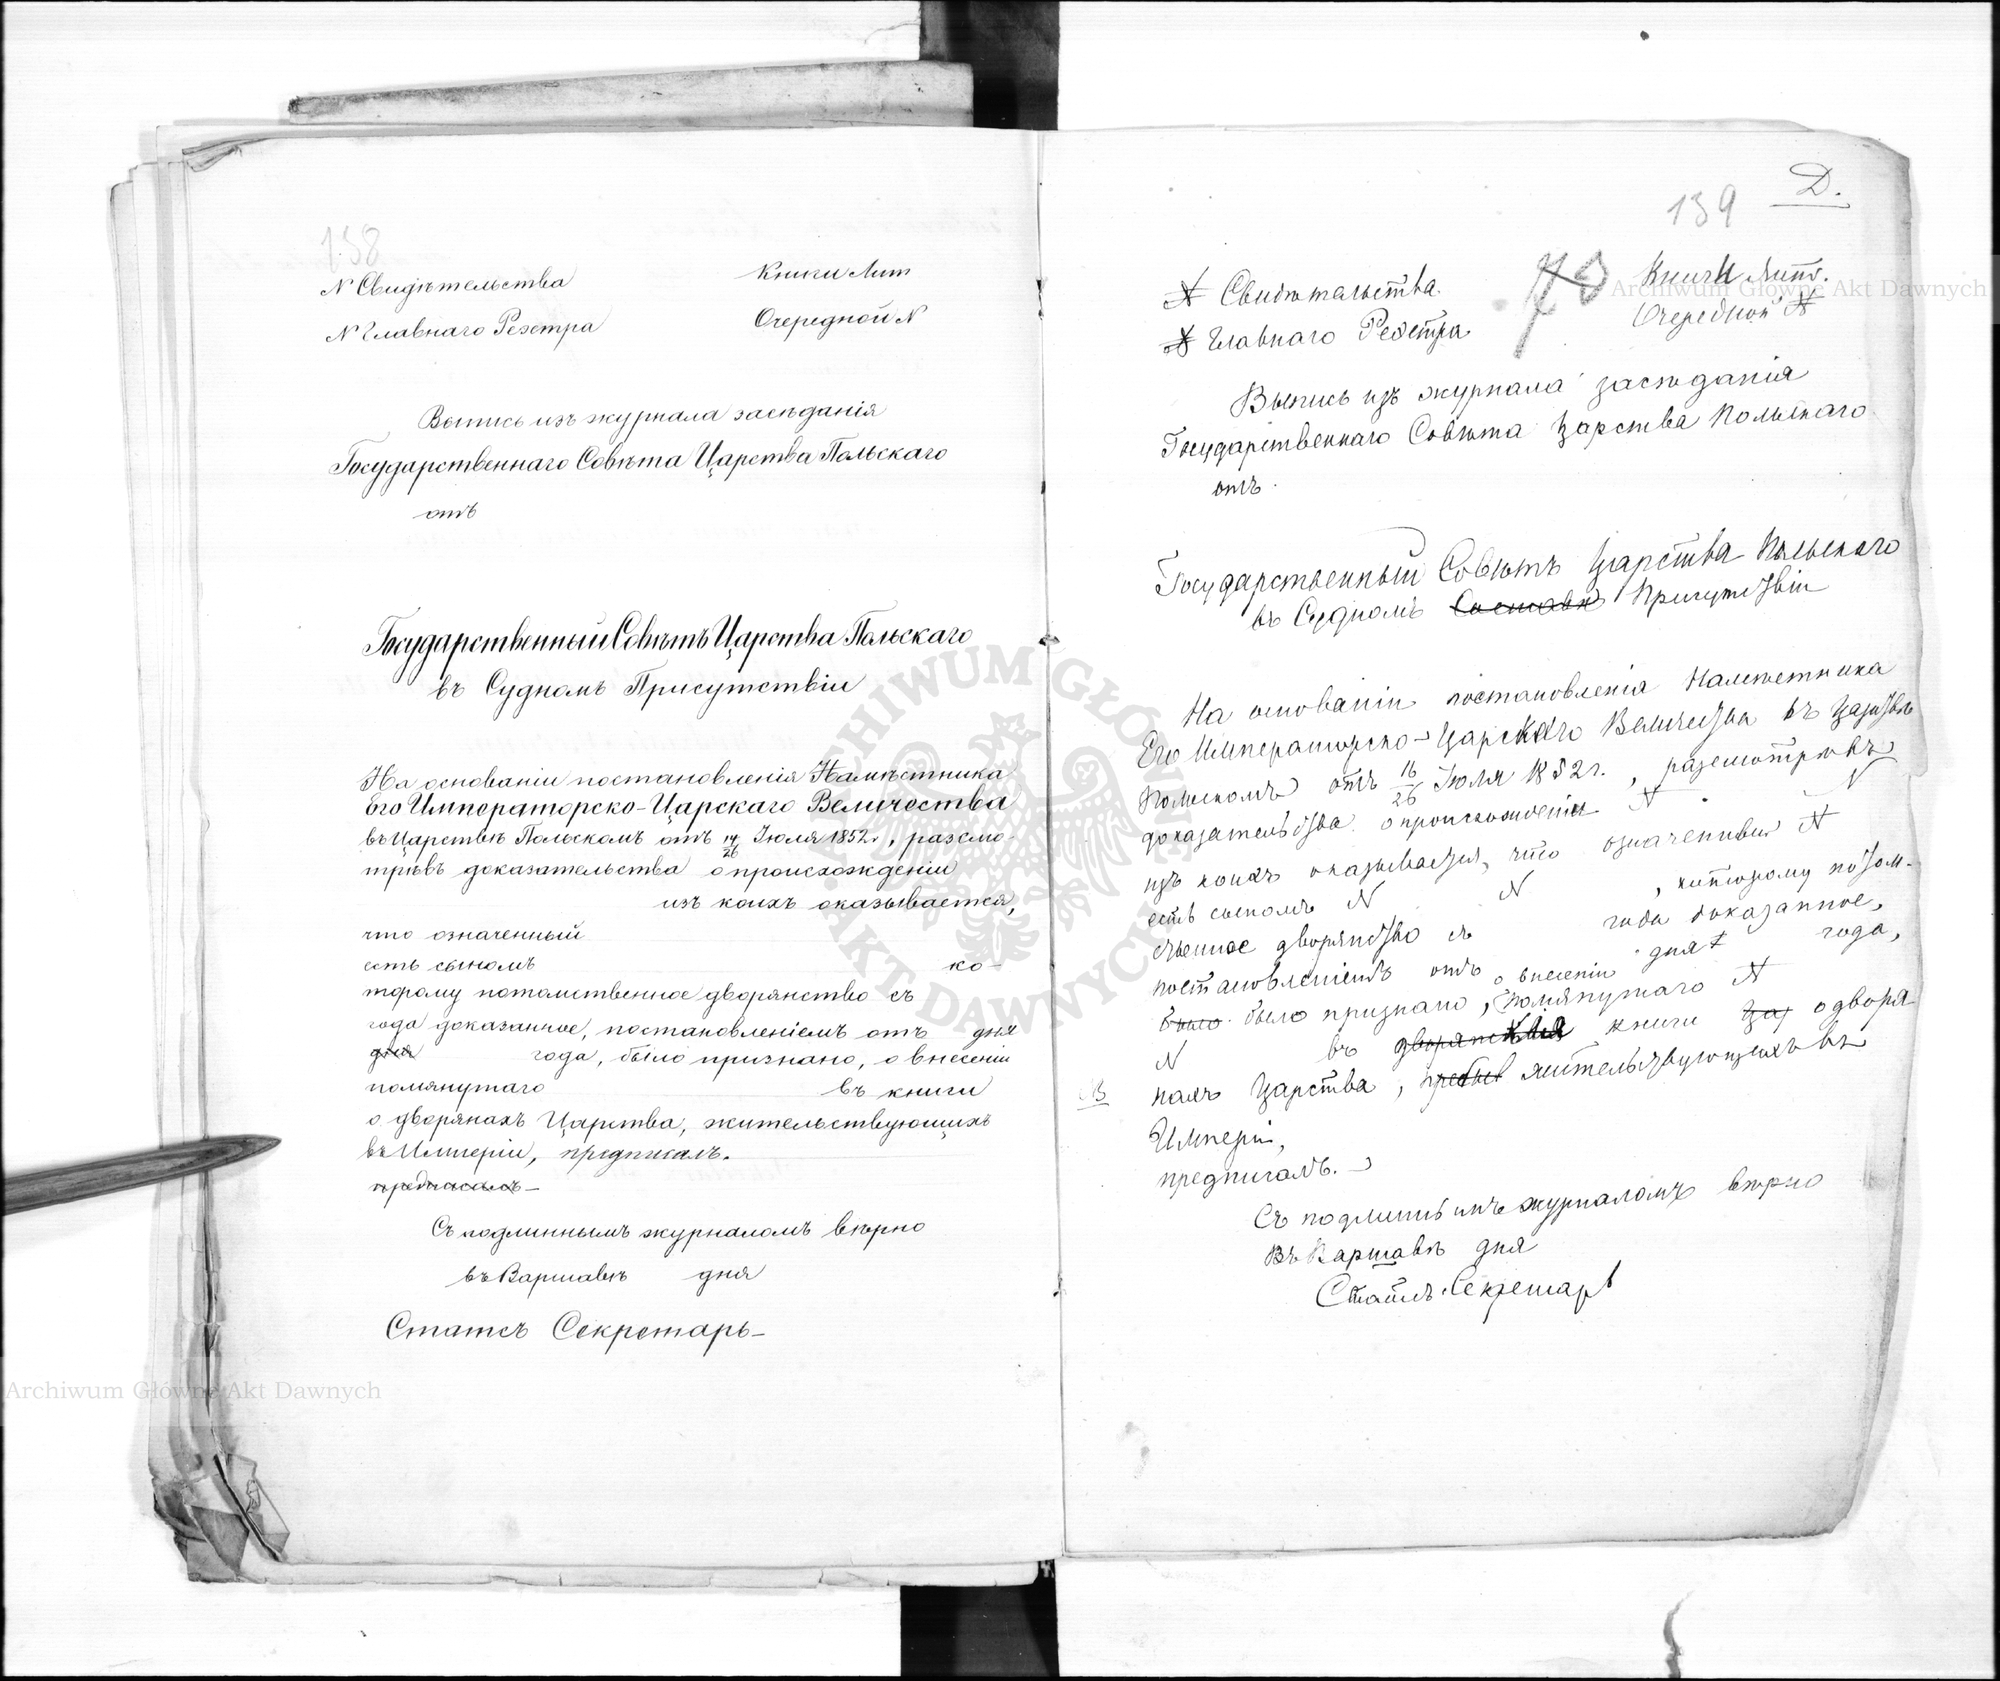 158
N Свидѣтельства
Книги Лит
N Главнаго Реэстра
Очередной N
Выпись изъ журнала засѣданія
Государственнаго Совѣта Царства Польскаго
отъ
Государственный Совѣтъ Царства Польскаго
въ Судномъ Присутствіи
На основаніи постановленія Намѣстника
Его Императорско-Царскаго Величества
въ Царствѣ Польскомъ отъ 14/26 Іюля 1852 г., разсмо-
трѣвъ доказательства о происхожденіи
изъ коихъ оказывается,
что означенный
есть сыномъ ко-
торому потомственное дворянство съ
года доказанное, постановленіемъ отъ дня
дня года, было признано, о внесеніи
помянутаго въ книги
о дворянахъ Царства, жительствующихъ
въ Имперіи, предписалъ.
предписалъ-
Съ подлиннымъ журналомъ вѣрно
въ Варшавѣ дня
Статсъ Секретарь-
Д.
139
N Свидѣтельства
70
Книги Лит.
N Главнаго Реэстра
Очередной N
Выпись изъ журнала засѣданія
Государственнаго Совѣта Царства Польскаго
отъ
Государственный Совѣтъ Царства Польскаго
въ Судномъ Составѣ Присутствіи
На основаніи постановленія Намѣстника
Его Императорско-Царскаго Величества въ Царствѣ
Польскомъ отъ 16/26 Іюля 1852 г., разсмотрѣвъ
доказательства о происхожденіи N N
изъ коихъ оказывается, что означенный N
есть сыномъ N N, которому потом-
ственное дворянство съ года доказанное,
постановленіемъ отъ дня года,
было было признано, о внесеніи помянутаго N
N въ дворянскія книги за о дворя-
В
нахъ Царства, пребыв жительствующихъ въ
Имперіи,
предписалъ.
Съ подлиннымъ журналомъ вѣрно
Въ Варшавѣ дня
Статсъ-Секретарь
ARCHIWUM GŁÓWNE AKT DAWNYCH
Archiwum Główne Akt Dawnych
Archiwum Główne Akt Dawnych